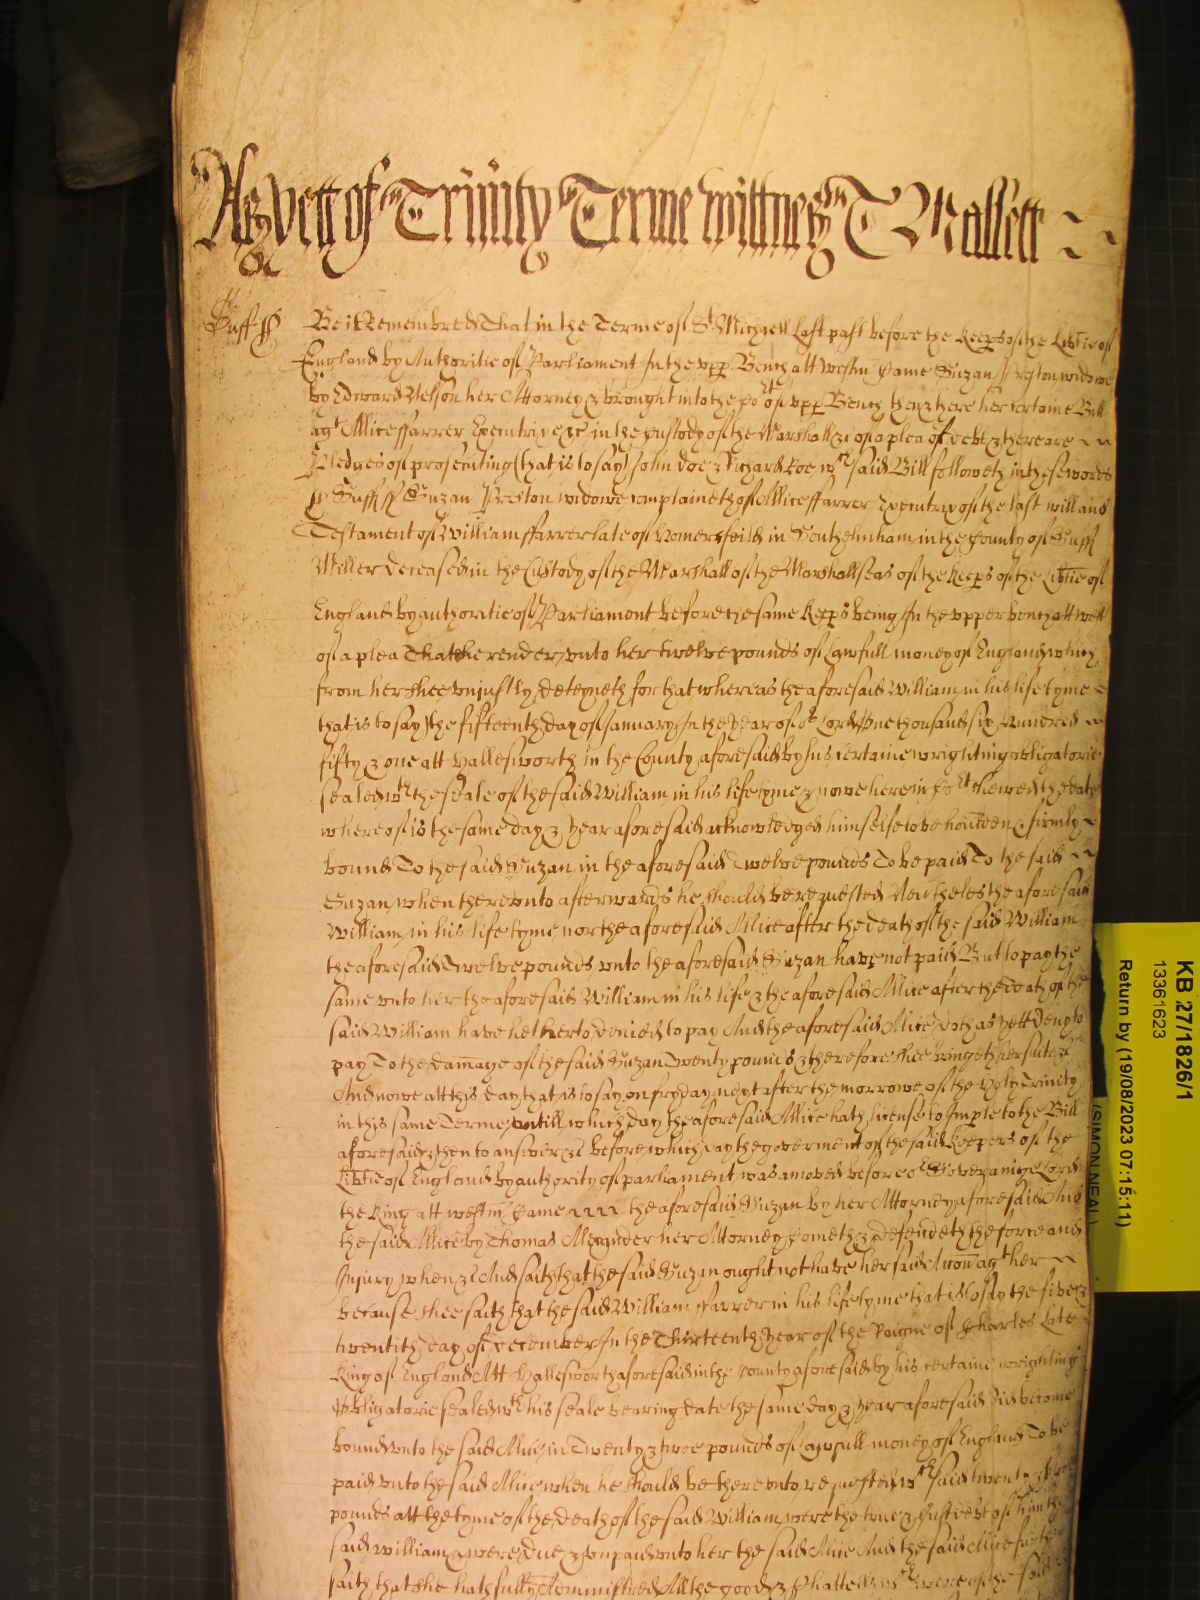 As yett of Trinity Terme wittnes T Mallett
Suff ss Be it Remembred That in the Terme of St Michaell last past before the Keeps of the Libtie of
England by Authoritie of Parliament In the upp Bench att Westm Came Suzan Preston widowe
by Edward Nelson her Attorney & brought into the said Cot of upp Bench then & there her certaine Bill
agt Alice ffarrer Executrix &c in the Custody of the Marshall &c of a plea of debt & there are
Pledges of prosecuting (that is to say) John Doe & Richard Roe wch said Bill followeth in these words
Suff ss Suzan Preston widowe complaineth of Alice ffarrer Executrix of the last will and
Testament of William ffarrer late of Homersfeild in Southelmham in the County of Suff
Miller deceased in the Custody of the Marshall of the Marshallseas of the Keeps of the Libtie of
England by authoratie of Parliament before the same Keeps being In the upper bench att West
of a plea That she render unto her twelve pounds of Lawfull money of England which
from her shee unjustly deteyneth for that whereas the aforesaid William in his life tyme
that is to say the fifteenth day of January In the year of or Lord One thousand six hundred
fifty & one att Hallesworth in the County aforesaid by his certaine wrighting obligatorie
sealed wth the seale of the said William in his life tyme & nowe here in Cot shewed the date
whereof is the same day & year aforesaid acknowledged himselfe to be houlden & firmly
bound To the said Suzan in the aforesaid Twelve pounds To be paid To the said
Suzan when thereunto afterwards he should be requested Nevtheles the aforesaid
William in his life tyme nor the aforesaid Alice after the death of the said William
the aforesaid Twelve pounds unto the aforesaid Suzan have not paid But to pay the
same unto her the aforesaid William in his life & the aforesaid Alice after the death of the
said William have hetherto denied to pay And the aforesaid Alice doth as yett deny to
pay To the Damage of the said Suzan Twenty pounds & therefore shee bringeth her suite &c
And nowe att this day that is to say on fryday next after the morrowe of the holy Trinity
in this same Terme untill which day the aforesaid Alice hath license to Imple to the Bill
aforesaid & then to answer &c before which day the goverment of the said Keepers of the
Libtie of England by authority of parliament was amoved before or Soveraigne Lord
the King att westm Came the aforesaid Suzan by her Attorney aforesaid And
the said Alice by Thomas Alexander her Attorney Cometh & defendeth the force and
Injury when &c And saith that the said Suzan ought not have her said Accon agt her
because shee saith that the said William ffarrer in his life tyme that is to say the five &
twentith day of december In the Thirteenth year of the Raigne of Charles Late
King of England Att Hallesworth aforesaid in the County aforesaid by his certaine wrighting
Obligatorie sealed wth his seale bearing date the same day & year aforesaid did become
bound unto the said Alice in Twenty & twoe pounds of Lawfull money of England To be
paid unto the said Alice when he should be thereunto requested wch said twenty & twoe
pounds att the tyme of the death of the said William were the true & Just debt of him the
said William & were due & unpaid unto her the said Alice And the said Alice further
saith that she hath fully Administred All the goods & Chattells wch were of the said
KB 27/1826/1
13361623
(SIMON NEAL)
Return by (19/08/2023 07:15:11)